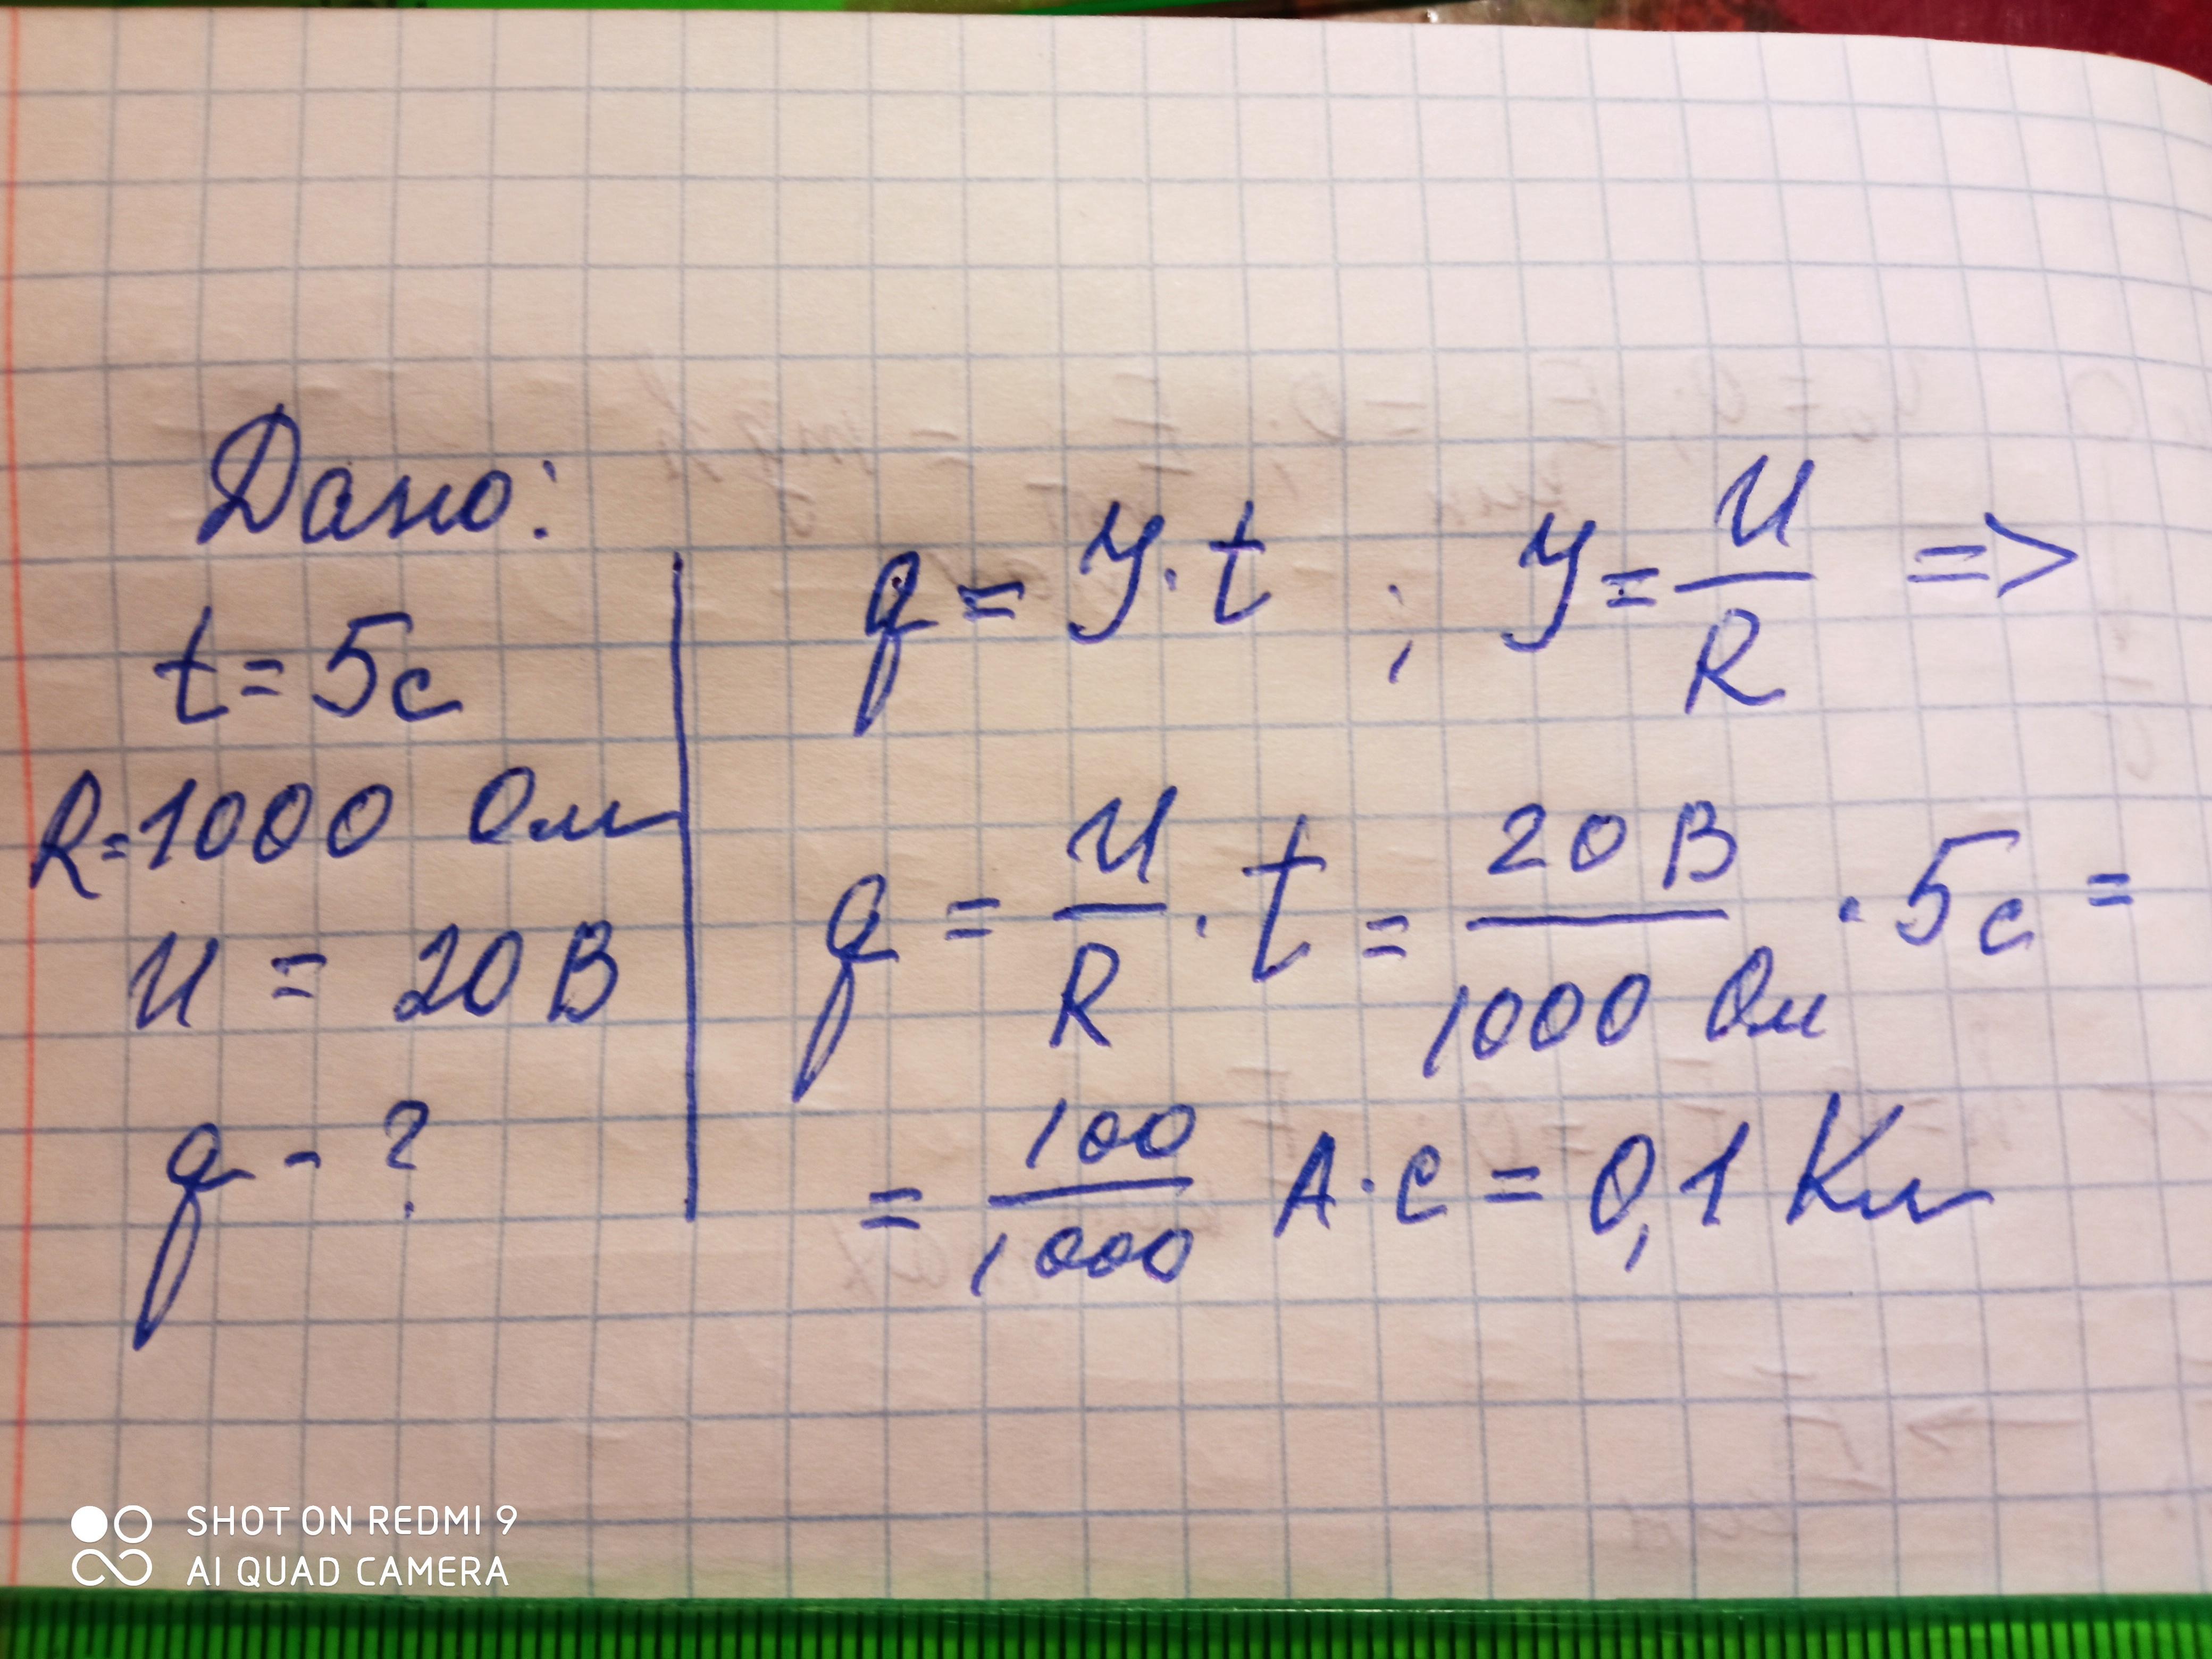 Дано:
t = 5с
R = 1000 Ом
U = 20 В
q - ?
q = У · t ; У = U/R =>
q = U/R · t = 20 В/1000 Ом · 5с =
= 100/1000 А · с = 0,1 Кл
SHOT ON REDMI 9
AI QUAD CAMERA